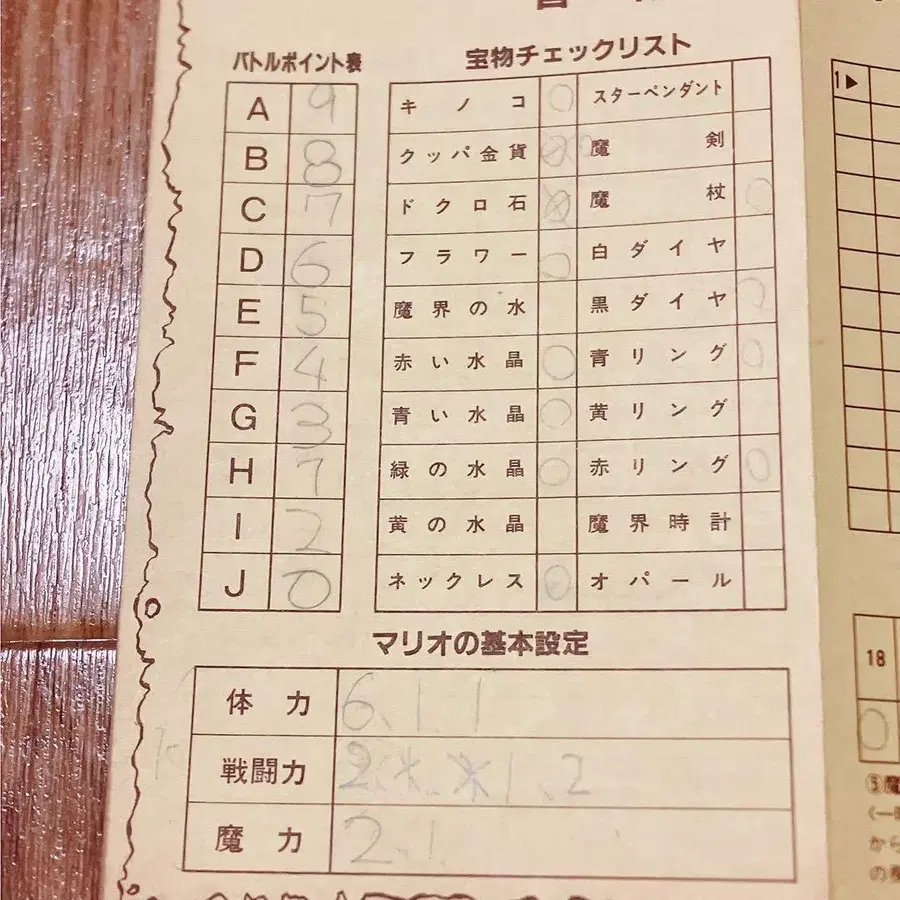 バトルポイント表
A 9
B 8
C 7
D 6
E 5
F 4
G 3
H 7
I 2
J 0
宝物チェックリスト
キノコ ○ スターペンダント
クッパ金貨 魔剣
ドクロ石 魔杖 ○
フラワー ○ 白ダイヤ
魔界の水 黒ダイヤ ○
赤い水晶 ○ 青リング ○
青い水晶 ○ 黄リング
緑の水晶 ○ 赤リング ○
黄の水晶 魔界時計
ネックレス ○ オパール
マリオの基本設定
体力 6、1 1
戦闘力 2、 1、2
魔力 2、1
1▶
18
○
⑤魔
から
の